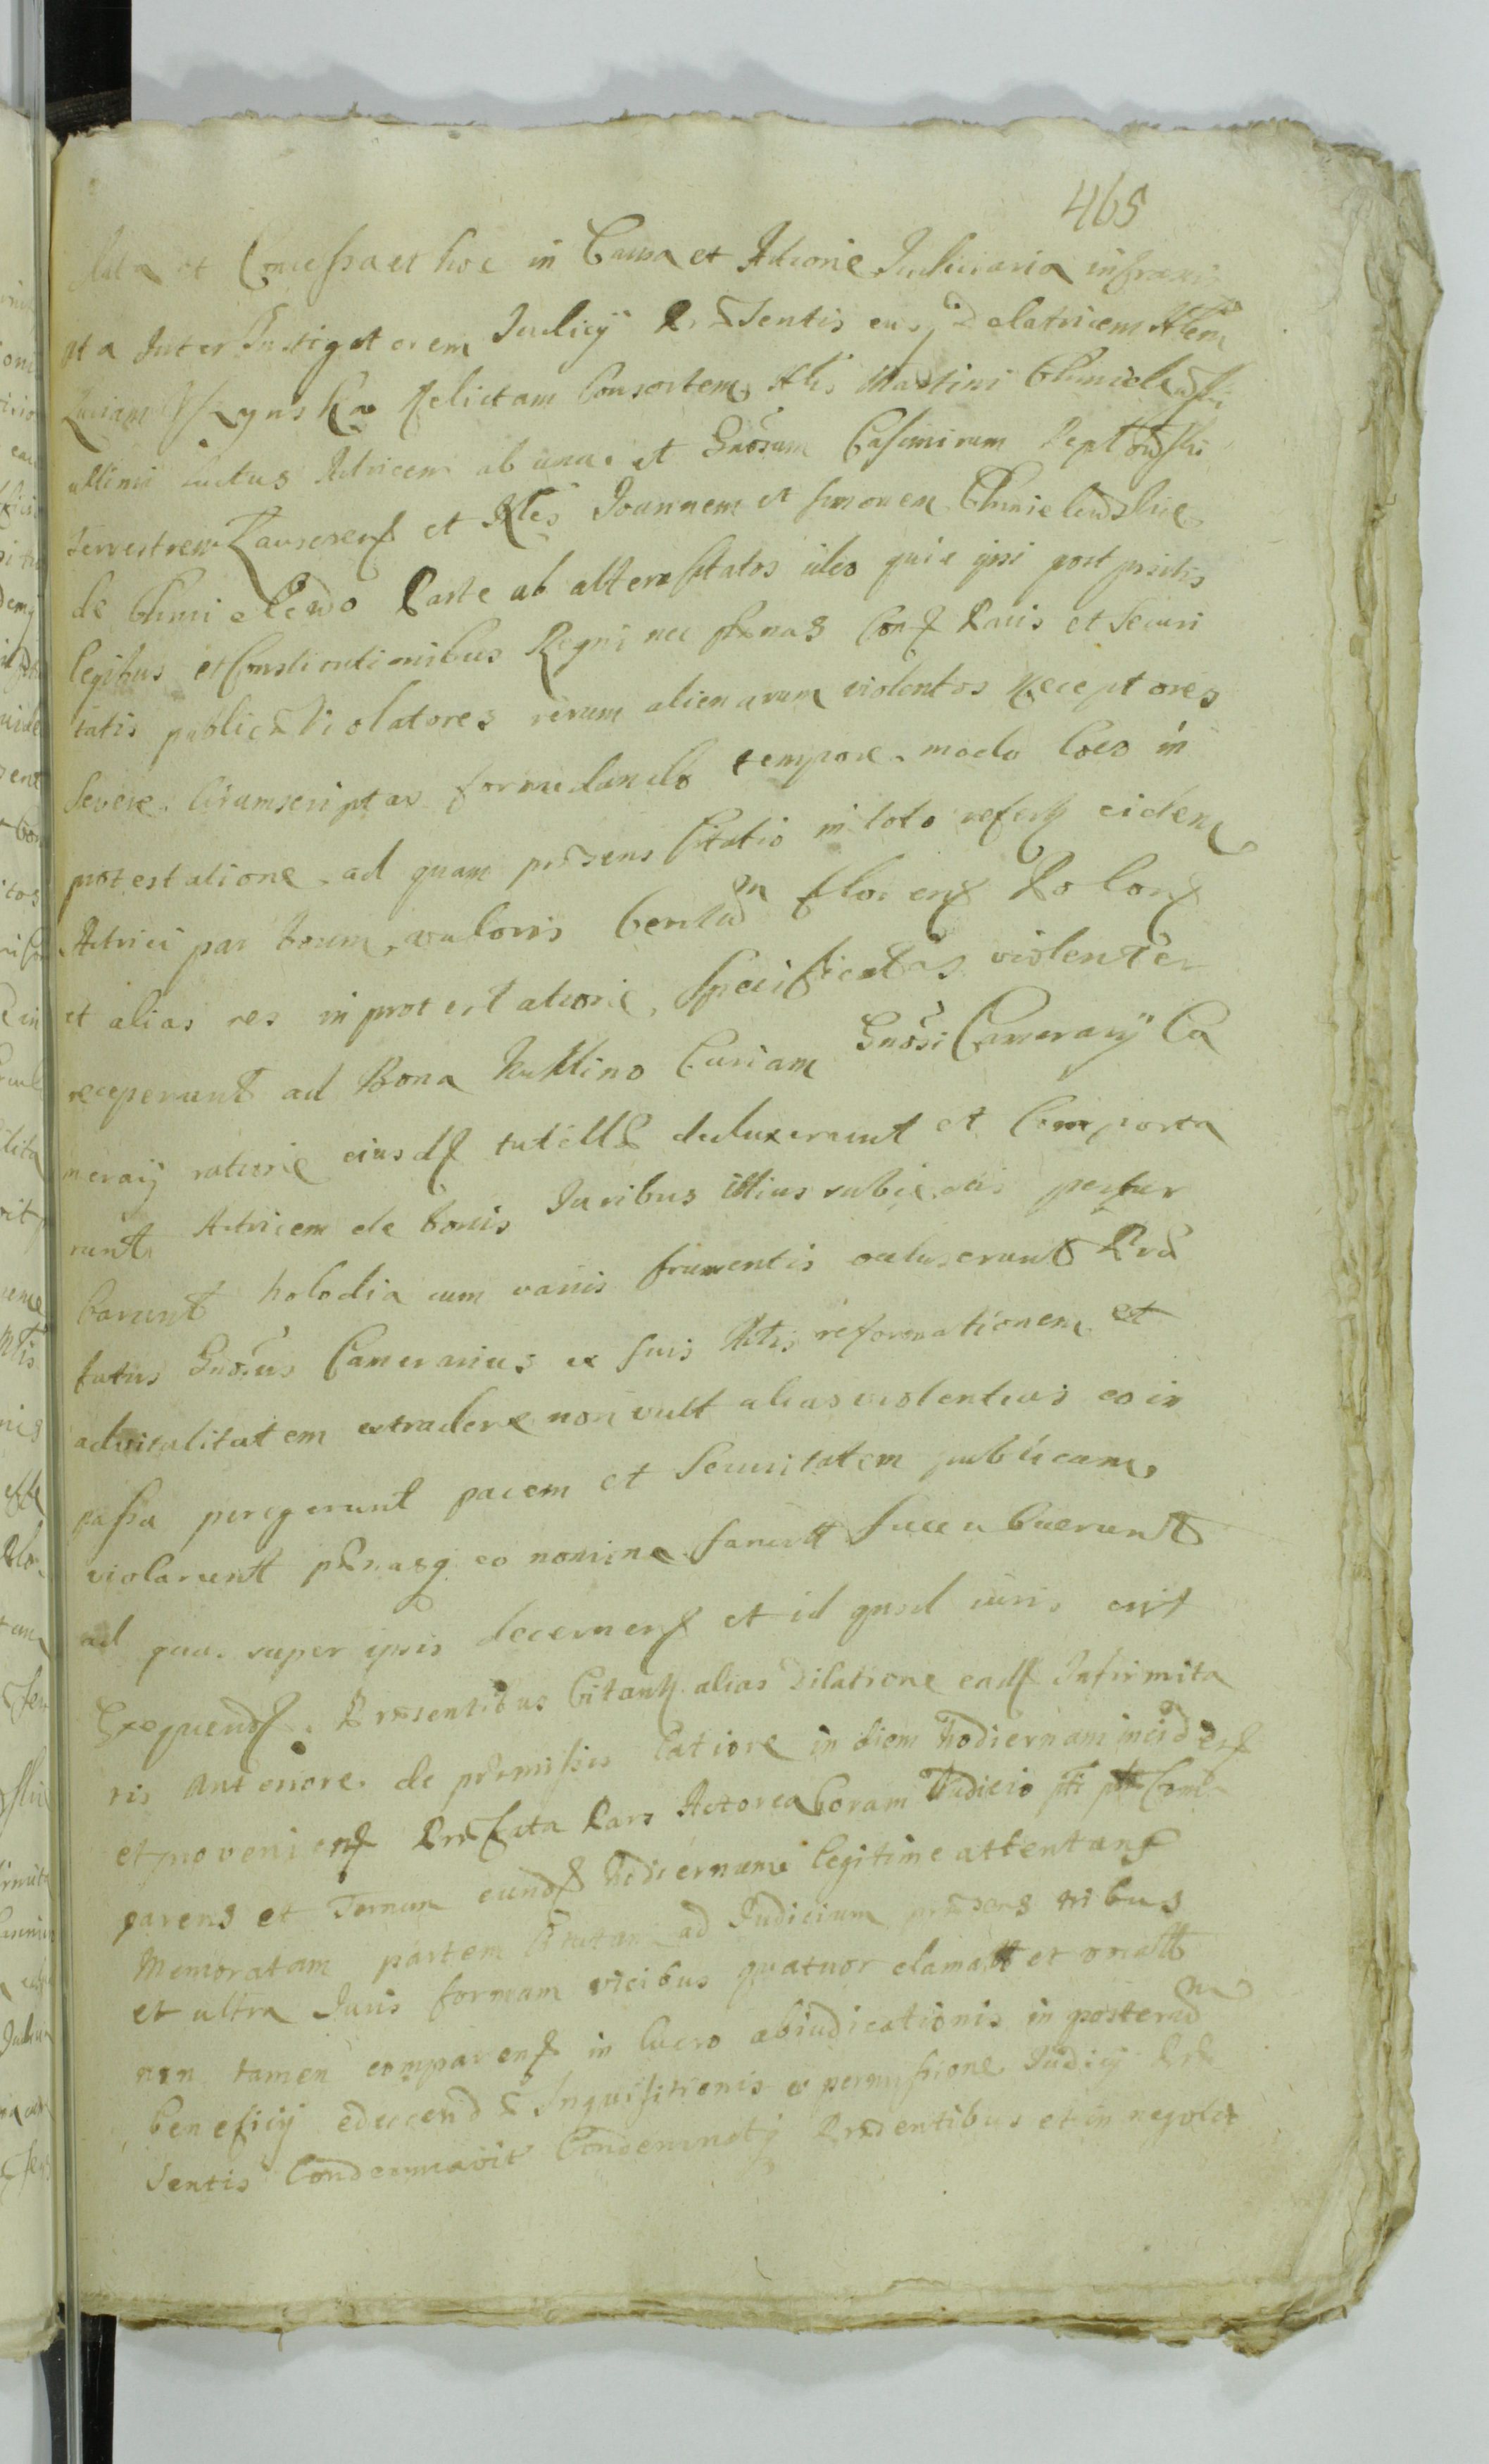 465
lata et Concessa est hoc in Causa et Actione Judiciaria infrascri
pta Inter Instigatorem Judicij Præsentis eiusq Delatricem Nlem
relictam Consortem Nlis Martini Chmielewski
ultimi luctus Actricem ab una. et Gnosum Casimirum
terrestrem et Nles Joannem et Simonem Chmielewskie
de Chmielewo Parte ab altera Citatos ideo quia ipsi post pritis
legibus et Constitutionibus Regni nec pænas Conf Pacis et Securi
tatis publicæ Violatores rerum alienarum violentos Receptores
severe. Circumscriptas formidando tempore. modo loco in
protestatione. ad quam præsens Citatio in toto refert eidem
Actrici par boum, valoris florenf Polonf
et alias res in protestatione, specificatas violenter
receperunt ad Bona Curiam Gnosi Camerarij Ca
merarij ratione eiusdf tutellæ deduxerunt et Comporta
runt. Actricem de bonis Juribus illius subiectis pertur
barunt holodia cum variis frumentis recluserunt Præ
fatus Gnosus Camerarius ex suis Actis reformationem et
advitalitatem extradere non vult alias violentias eo in
passu peregerunt pacem et Securitatem publicam.
violarunt pænasq eo nomine sancitt succubuerunt
ad quas super ipsis decernenf et id quod iuris erit
Exequendf. Præsentibus Citantr. alias Dilatione eadf Infirmita
tis Anteriore. de præmissis latiore in diem hodiernam inciden̄f
et provenienf Præfata Pars Actorea Coram Judicio pnti Com
parens et Termum eundf hodiernam legitime attentanf
Memoratam partem Citatam ad Judicium præsens tribus
et ultra Juris formam vicibus quatuor clamatt et
non tamen comparenf in lucro abiudicationis in posterum
beneficij educendæ Inquisitionis ex permissione Judicij Præ
sentis Condemnavit Condemnatq Præsentibus et in negotio